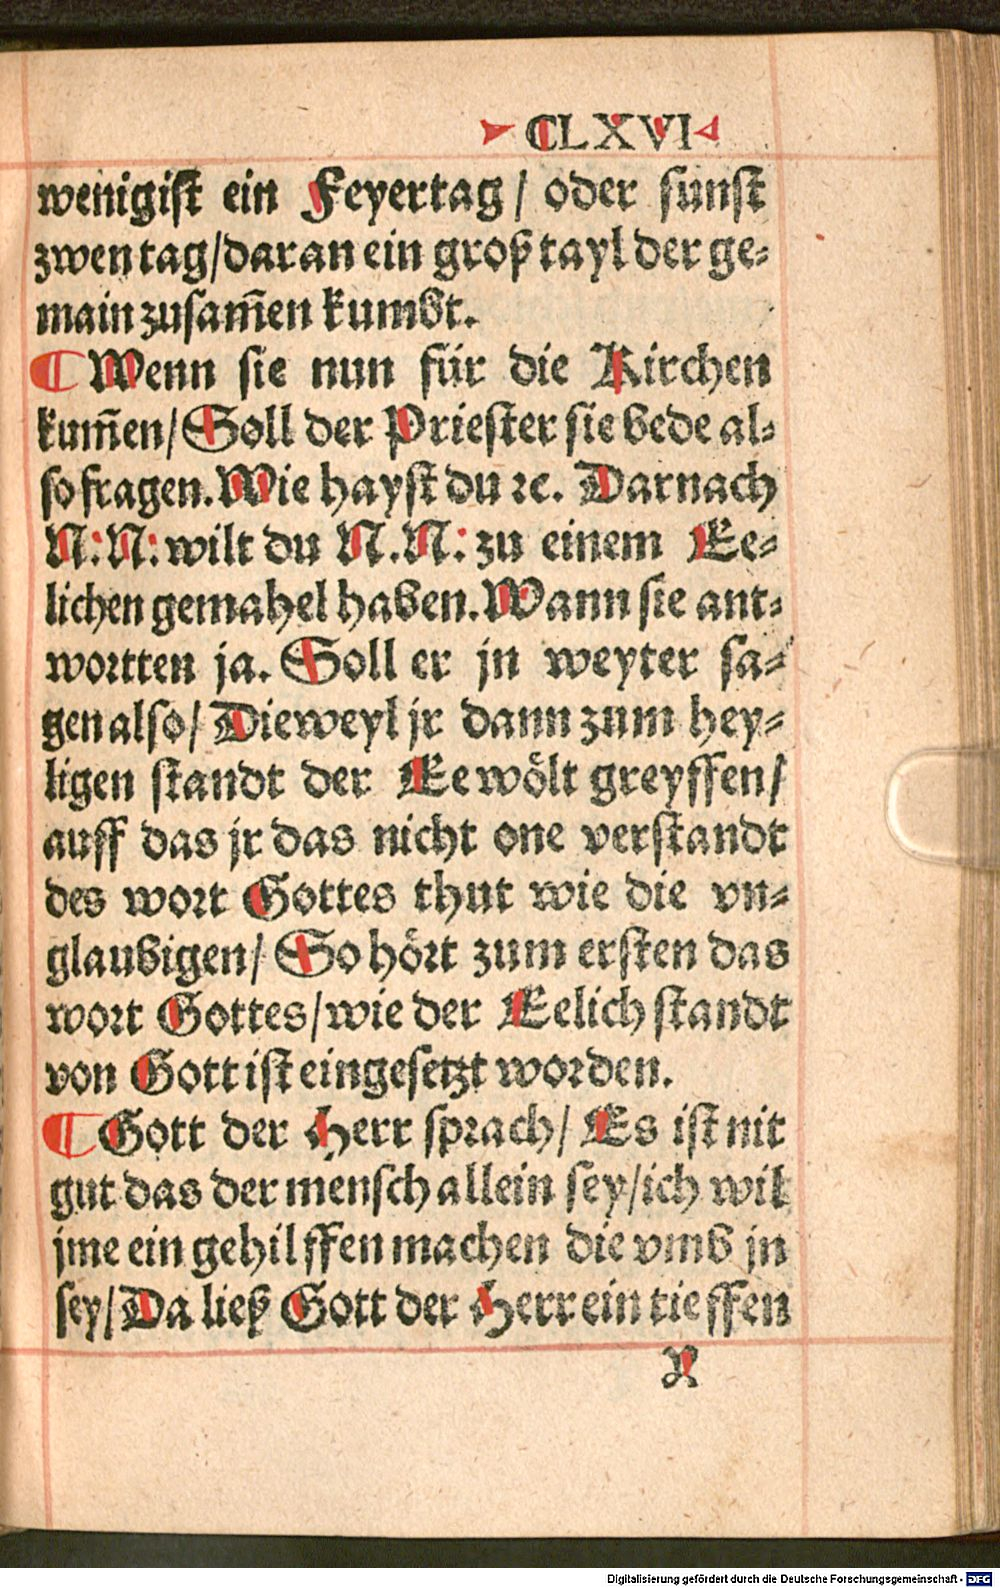 CLXVI
wenigiſt ein Feyertag/ oder ſunſt
zwen tag/daran ein groß tayl der ge⸗
main zuſam̃en kumbt.
¶ Wenn ſie nun für die Kirchen
kum̃en/Soll der Prieſter ſie bede al⸗
ſo fragen.Wie hayſt du ꝛc. Darnach
N:N:wilt du N.N: zu einem Ee⸗
lichen gemahel haben.Wann ſie ant⸗
woꝛtten ja. Soll er jn weyter ſa⸗
gen alſo/ Dieweyl jr dann zum hey⸗
ligen ſtandt der Ee wölt greyffen/
auff das jr das nicht one verſtandt
des woꝛt Gottes thut wie die vn⸗
glaubigen/ So höꝛt zum erſten das
woꝛt Gottes/wie der Eelich ſtandt
von Gott iſt eingeſetzt woꝛden.
¶ Gott der Herr ſpꝛach/ Es iſt nit
gut das der menſch allein ſey/ich wil
jme ein gehilffen machen die vmb jn
ſey/Da ließ Gott der Herr ein tieffen
X
Digitalisierung gefördert durch die Deutsche Forschungsgemeinschaft - DFG